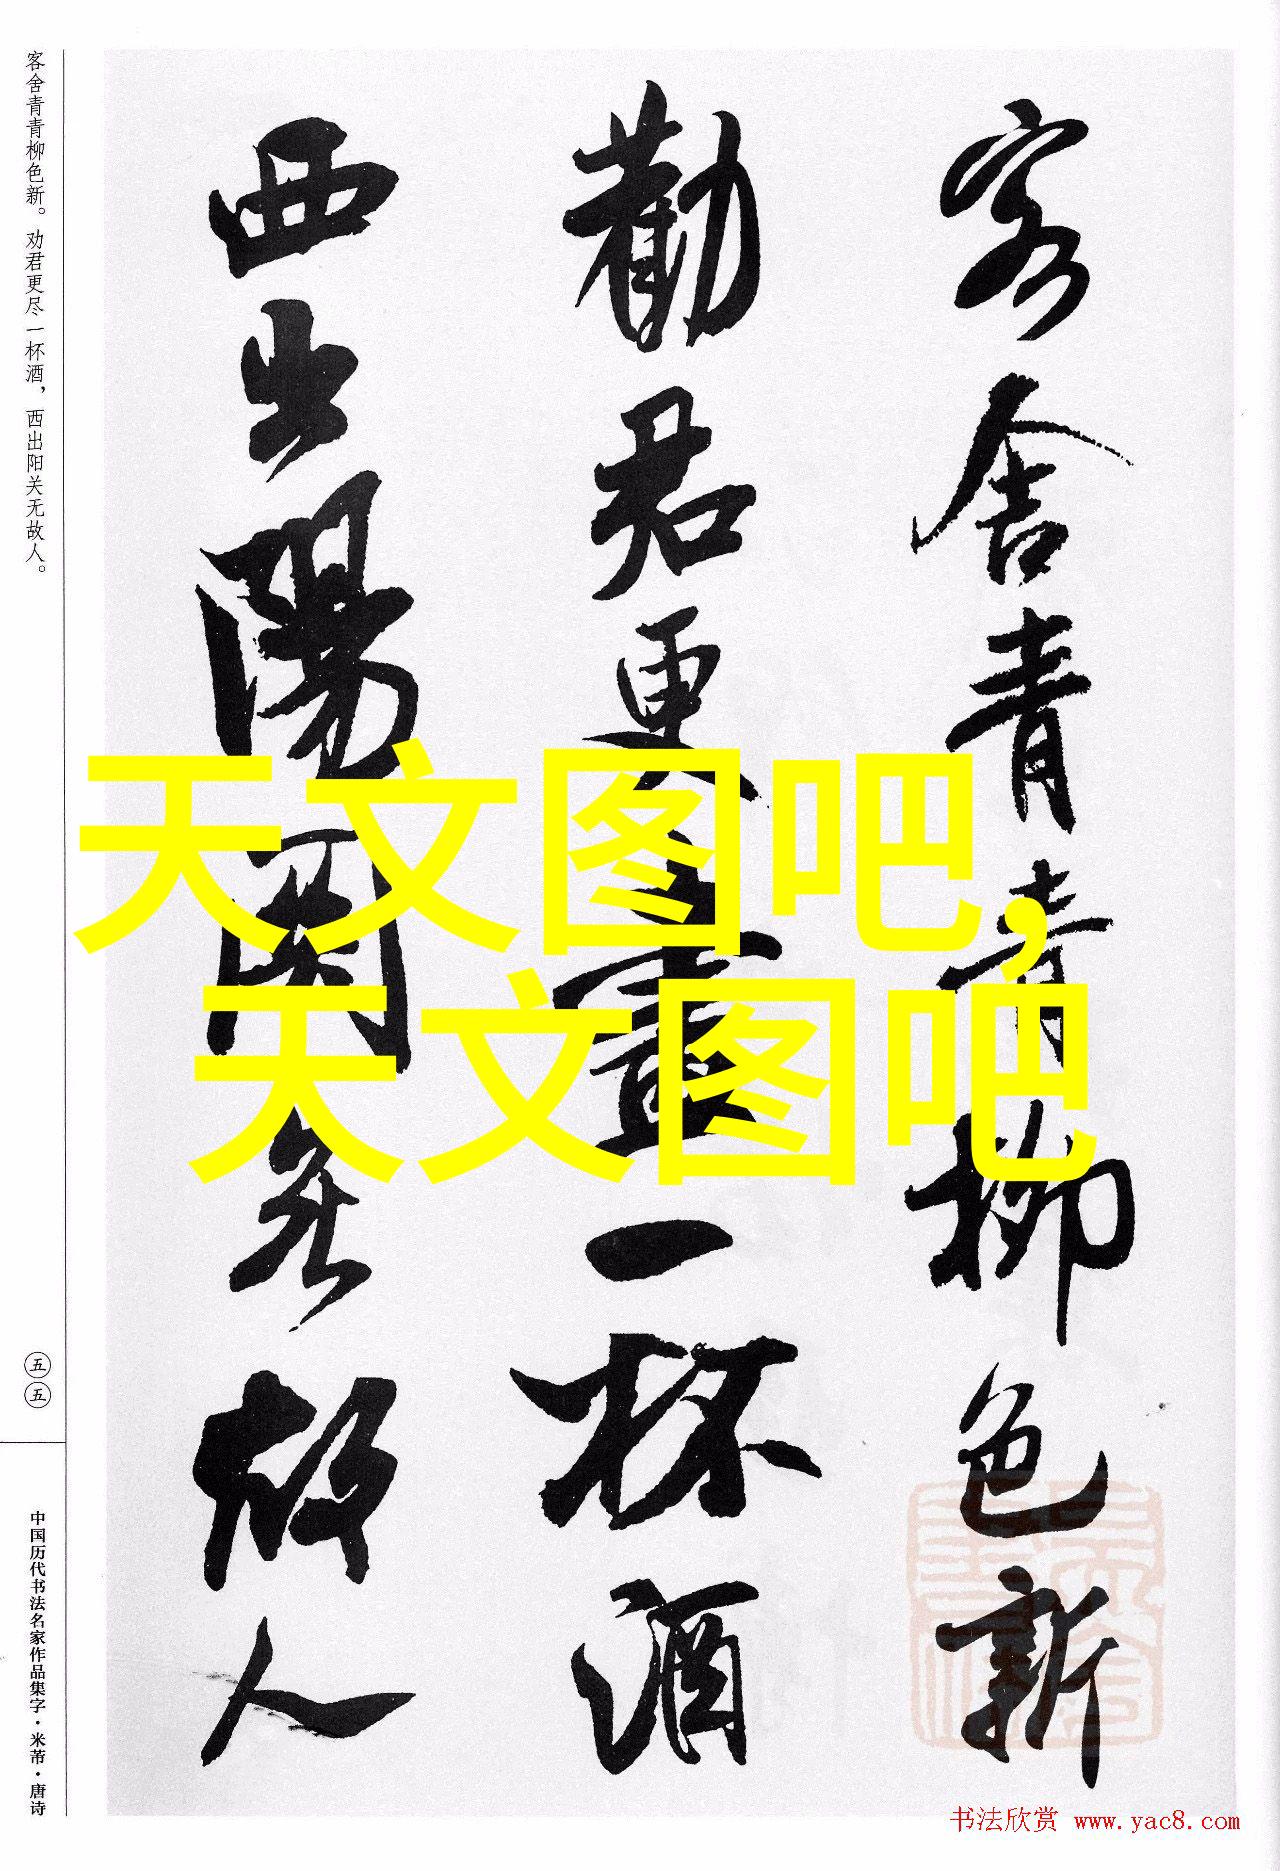 客舍青青柳色新
勸君更盡一杯酒
西出陽關无故人
客舍青青柳色新。劝君更尽一杯酒，西出阳关无故人。
五五
中国历代书法名家作品集字·米芾·唐诗
天文图吧，
天文图吧
书法欣赏 www.yac8.com